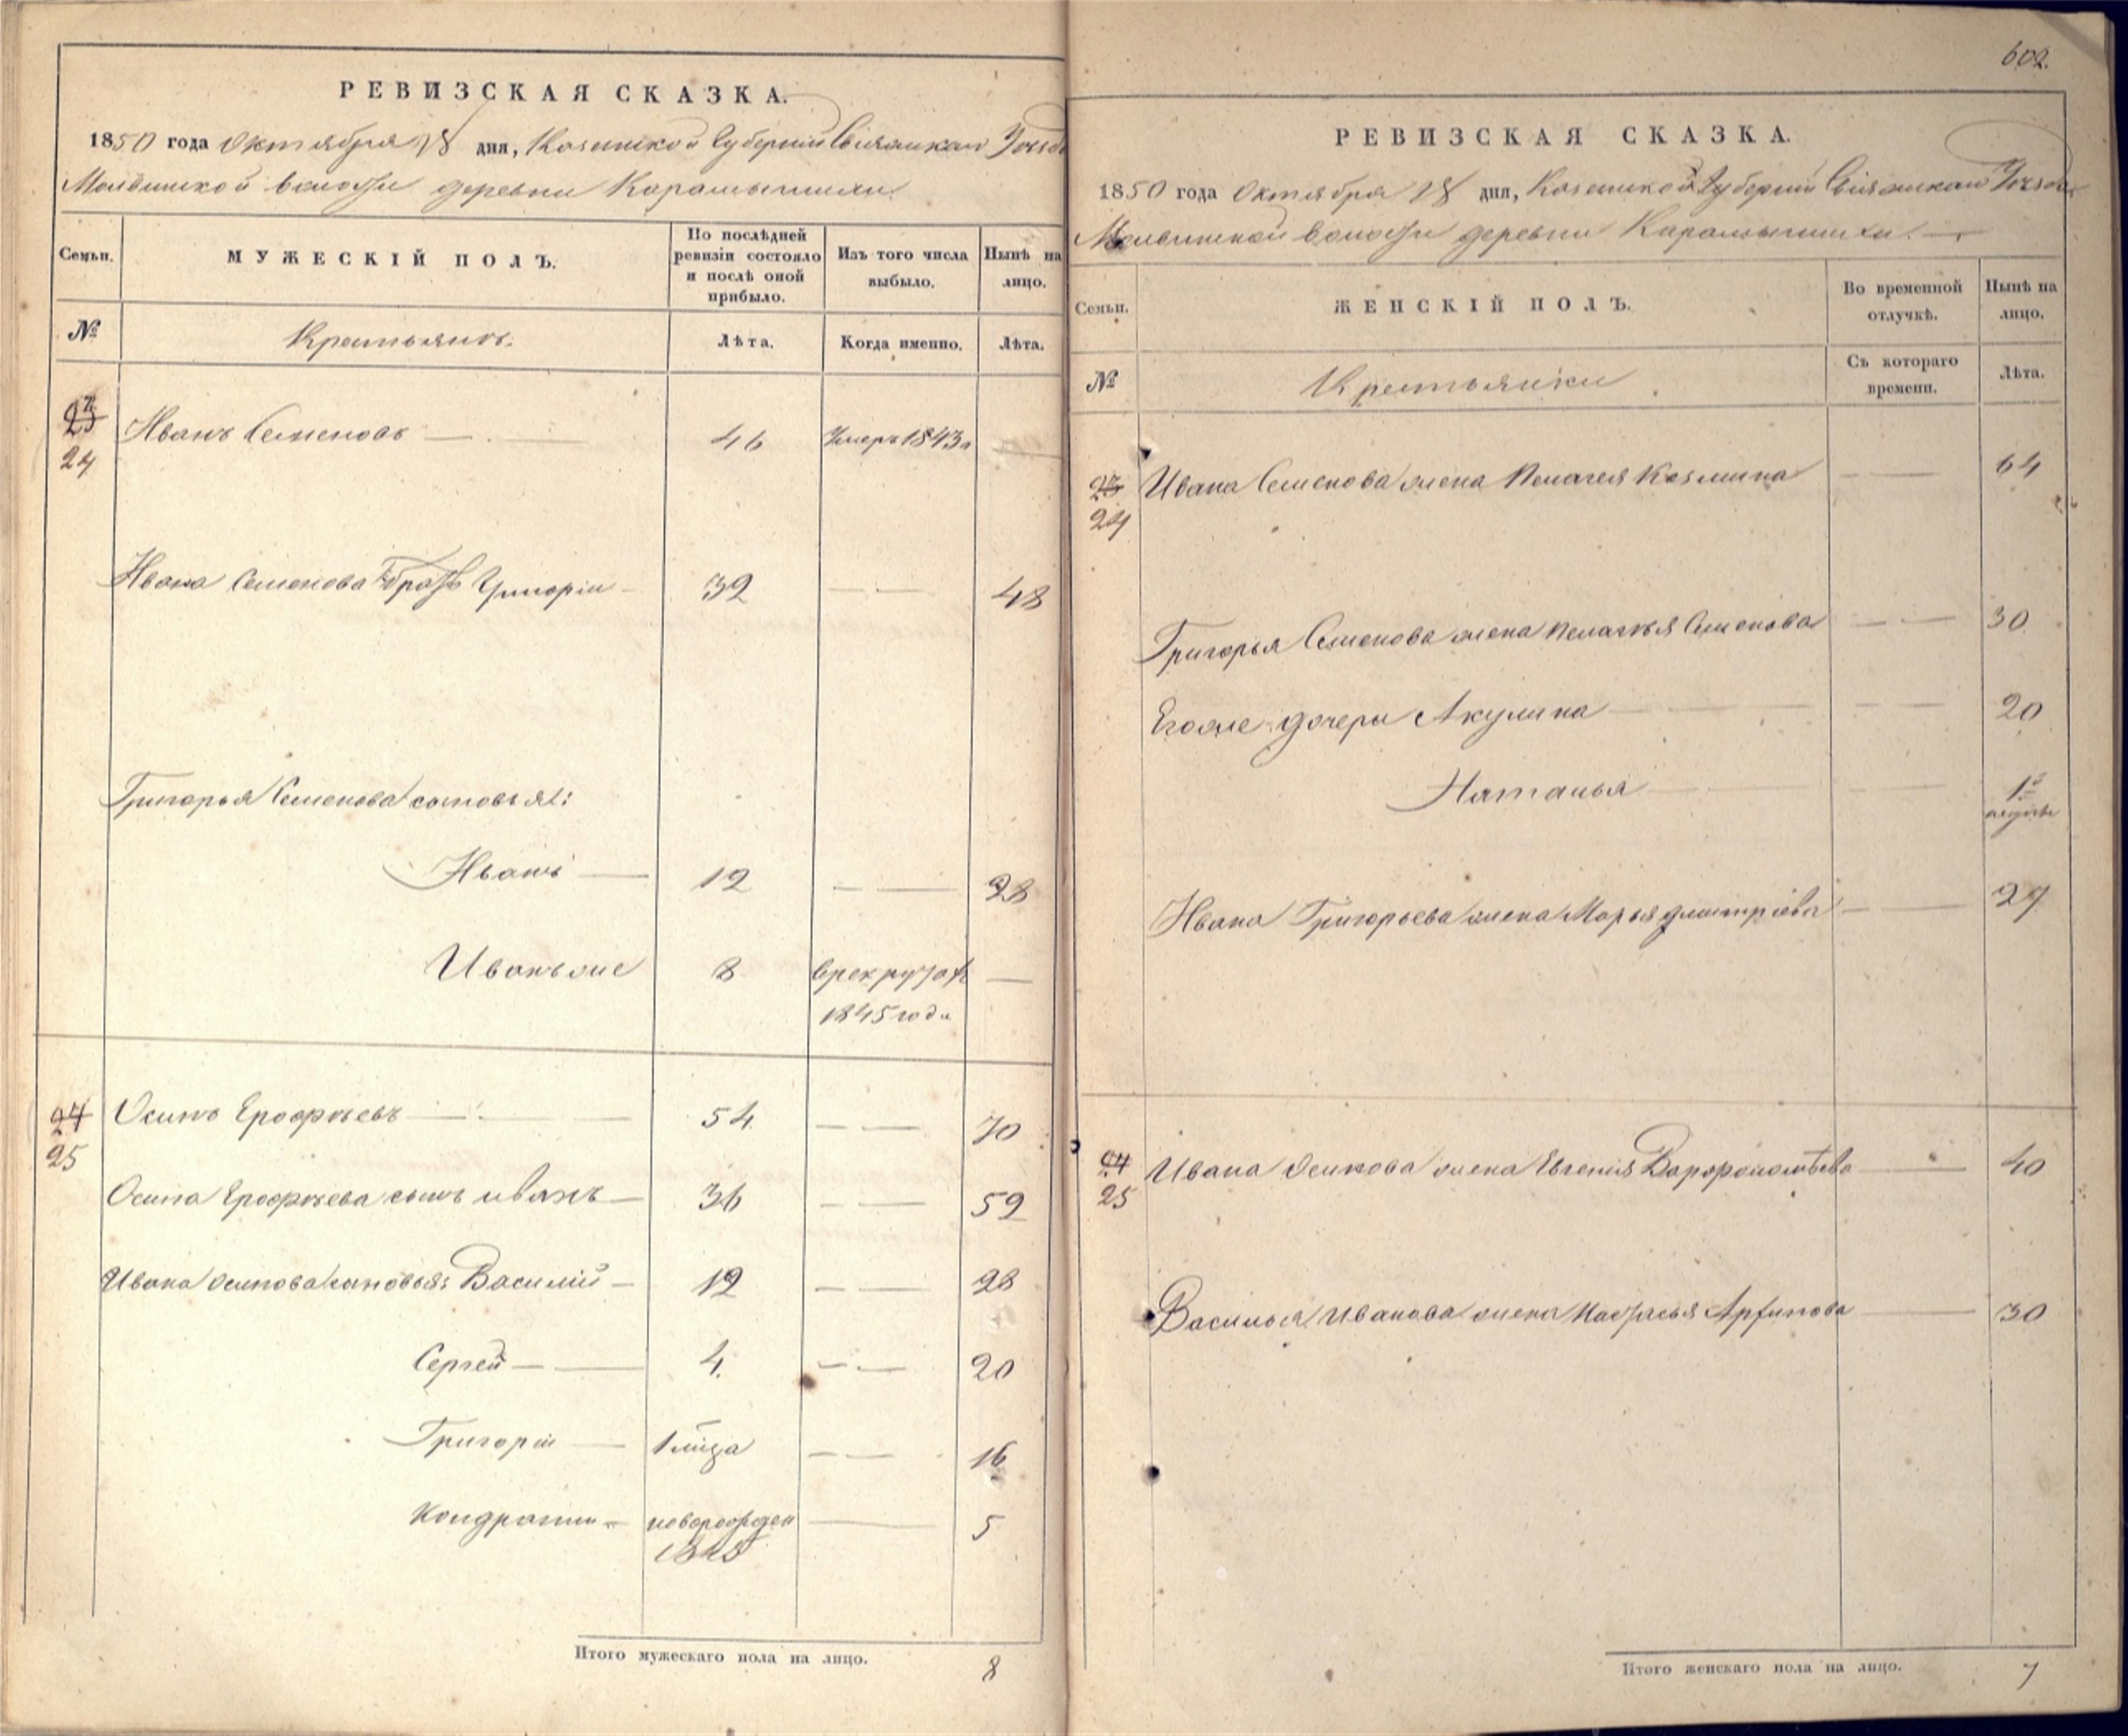 РЕВИЗСКАЯ СКАЗКА.
1850 года Октября 18 дня, Казанской Губернии Свіяжскаго Уезда
Молвинской волости деревни Карамышихи
Семьи.
МУЖЕСКІЙ ПОЛЪ.
По послѣдней ревизіи состояло и послѣ оной прибыло.
Изъ того числа выбыло.
Нынѣ на лицо.
№
Крестьянъ.
Лѣта.
Когда именно.
Лѣта.
23
24
Иванъ Семеновъ 46 Умеръ 1843 г
Ивана Семенова братъ Григоріи 32 48
Григорья Семенова сыновья:
Иванъ 12 28
Иванъ же 8 в рекрутахъ
1845 года
24
25
Осипъ Ерофѣевъ 54 70
Осипа Ерофѣева сынъ иванъ 36 59
Ивана осипова сыновья: Василій 12 28
Сергей 4. 20
Григорій 16
Кондратий новорожден 5
1845
Итого мужескаго пола на лицо. 8
602.
РЕВИЗСКАЯ СКАЗКА.
1850 года Октября 18 дня, Казанской Губернии Свіяжскаго Уезда
Молвинской волости деревни Карамышихи.
Семьи.
ЖЕНСКІЙ ПОЛЪ.
Во временной отлучкѣ.
Нынѣ на лицо.
№
Крестьянки
Съ котораго времени.
Лѣта.
23
24
Ивана Семенова жена Пелагея Козмина 64
Григорья Семенова жена Пелагѣя Семенова 30
Егоже дочери Акулина 20
Наталья
Ивана Григорьева жена Марья дмитріева 27
24
25
Ивана Осипова жена Евгенія Варфоломѣева 40
Василья Иванова жена Настасья Архипова 30
Итого женскаго пола на лицо. 7